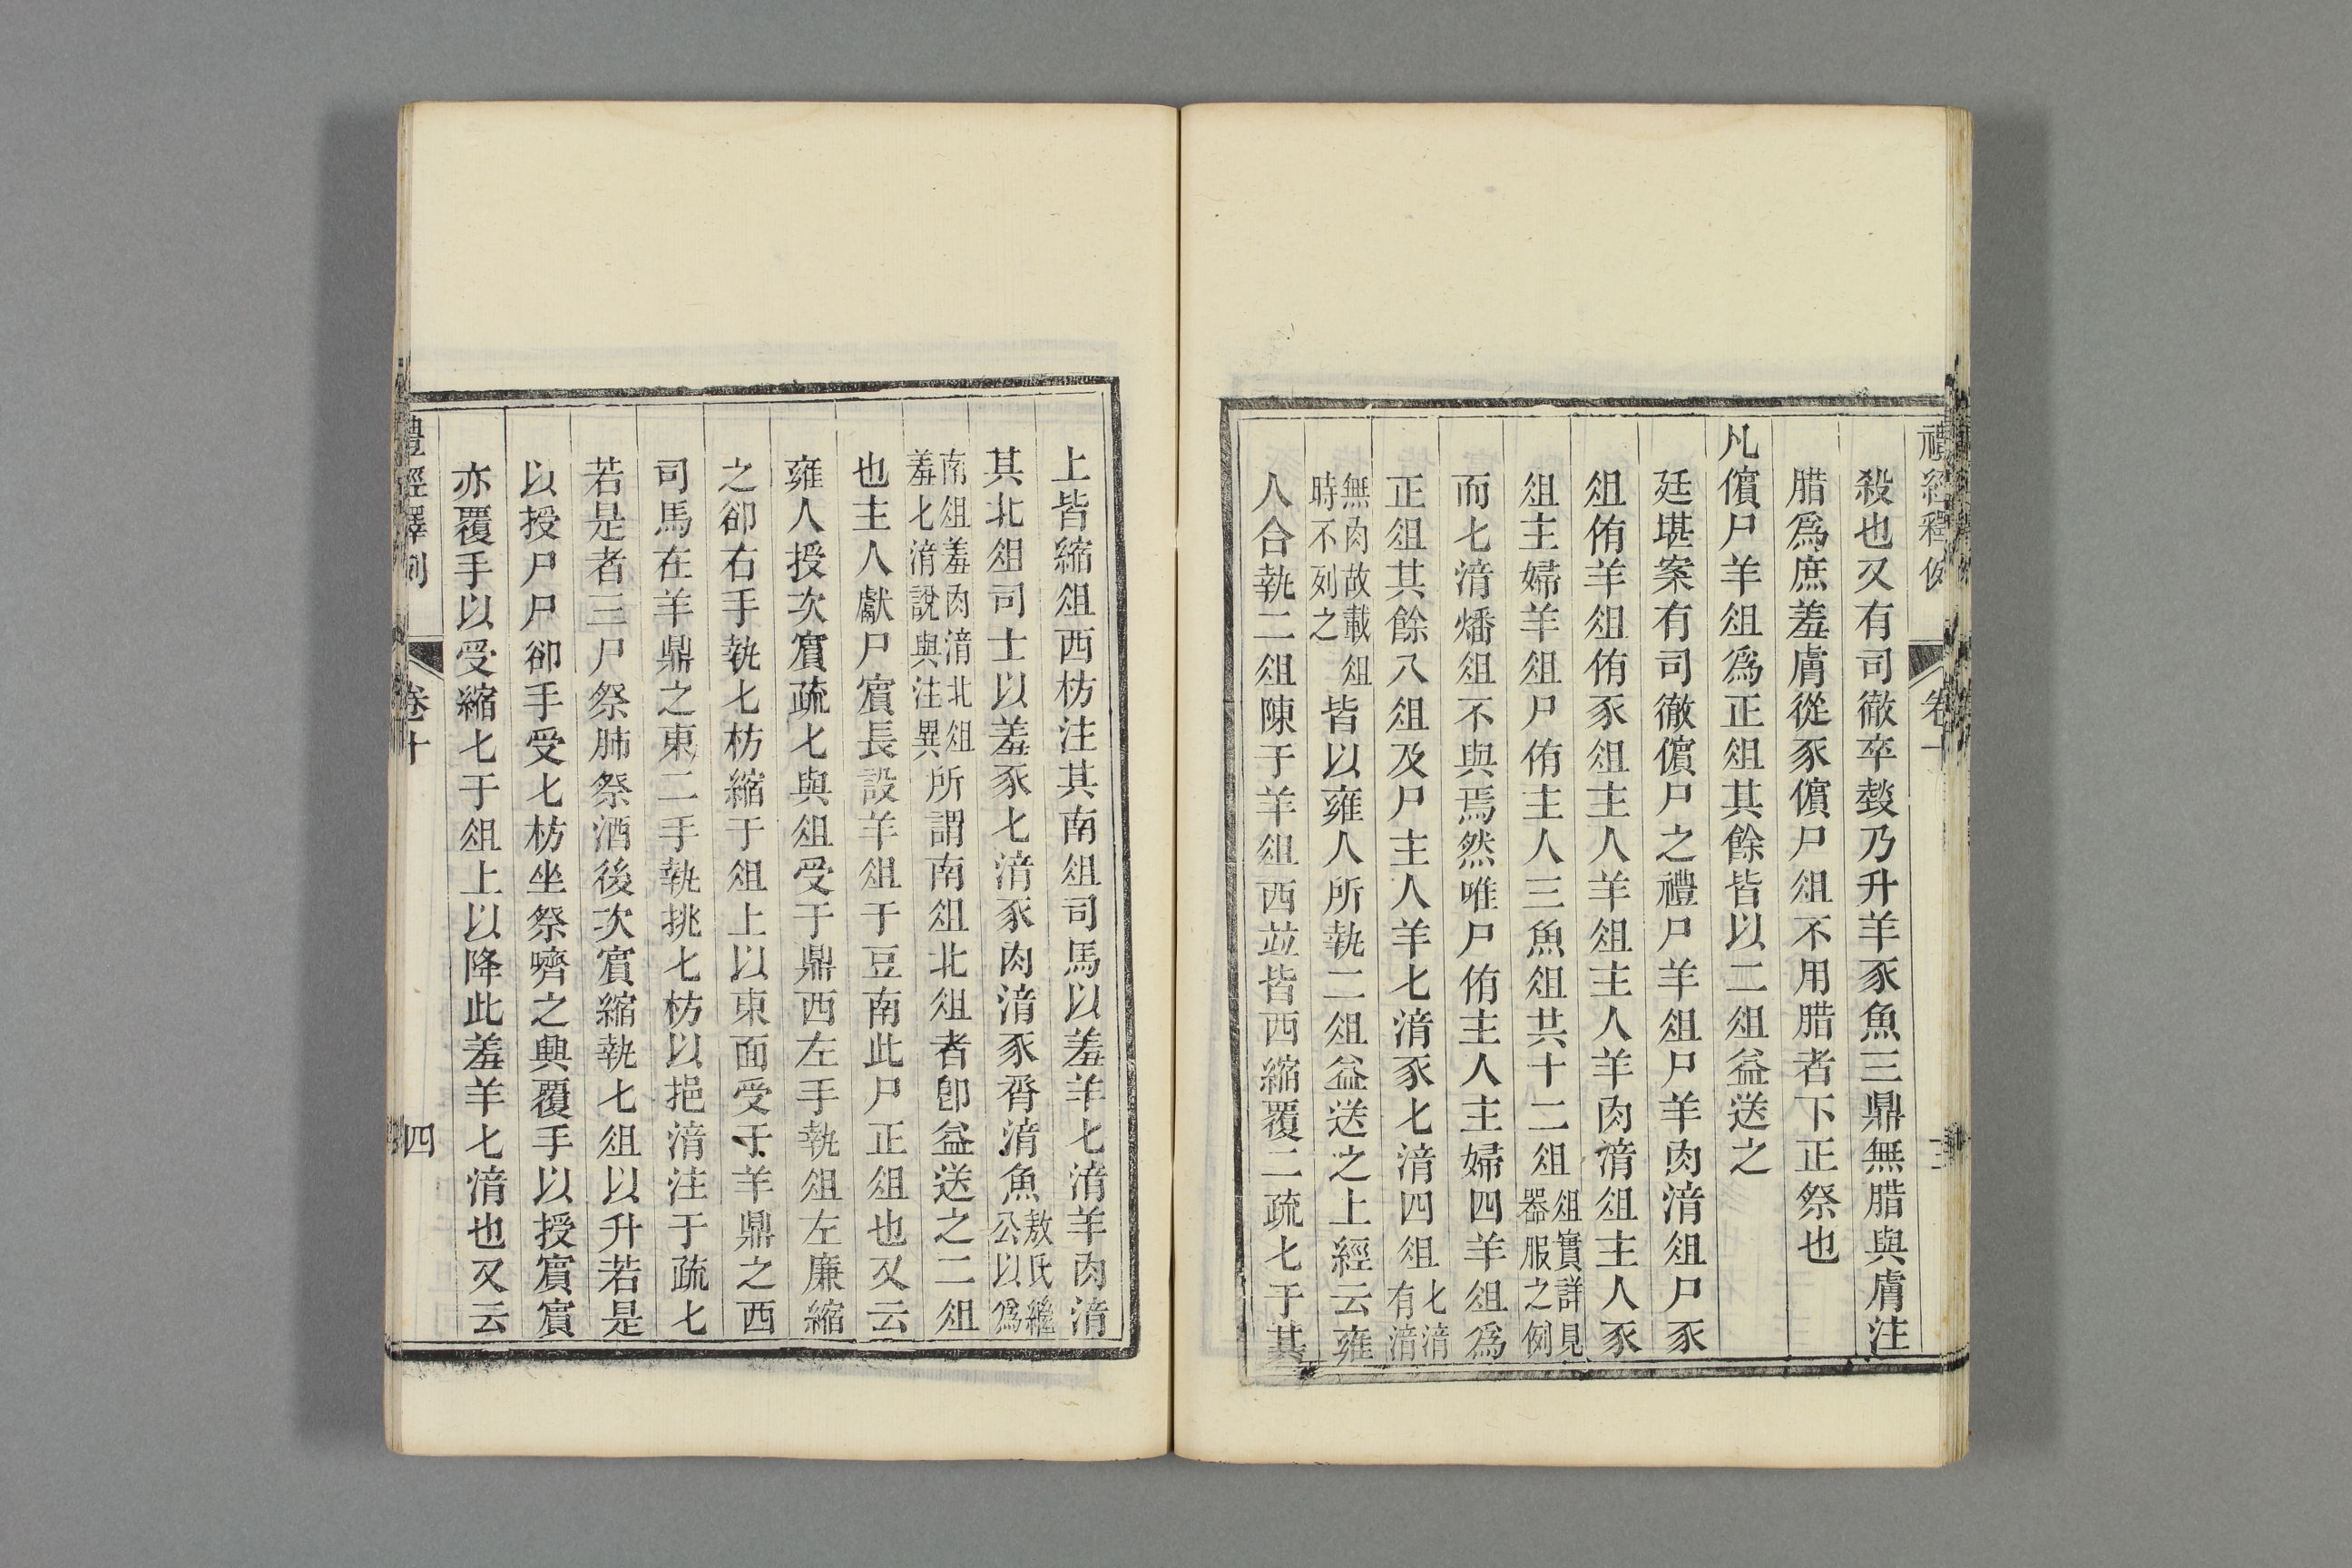 禮經釋例 卷十 三
殺也又有司徹卒燅乃升羊豕魚三鼎無腊與膚注
腊爲庶羞膚從豕儐尸俎不用腊者下正祭也
凡儐尸羊俎爲正俎其餘皆以二俎益送之
廷堪案有司徹儐尸之禮尸羊俎尸羊肉湆俎尸豕
俎侑羊俎侑豕俎主人羊俎主人羊肉湆俎主人豕
俎主婦羊俎尸侑主人三魚俎共十二俎俎實詳見器服之例
而匕湆燔俎不與焉然唯尸侑主人主婦四羊俎爲
正俎其餘八俎及尸主人羊匕湆豕匕湆四俎匕湆有湆
無肉故載俎時不列之皆以雍人所執二俎益送之上經云雍
人合執二俎陳于羊俎西竝皆西縮覆二疏匕于其
上皆縮俎西枋注其南俎司馬以羞羊匕湆羊肉湆
其北俎司士以羞豕匕湆豕肉湆豕脀湆魚敖氏繼公以爲
南俎羞肉湆北俎羞匕湆說與注異所謂南俎北俎者卽益送之二俎
也主人獻尸賓長設羊俎于豆南此尸正俎也又云
雍人授次賓疏匕與俎受于鼎西左手執俎左廉縮
之卻右手執匕枋縮于俎上以東面受于羊鼎之西
司馬在羊鼎之東二手執挑匕枋以挹湆注于疏匕
若是者三尸祭肺祭酒後次賓縮執匕俎以升若是
以授尸尸卻手受匕枋坐祭嚌之興覆手以授賓賓
亦覆手以受縮匕于俎上以降此羞羊匕湆也又云
禮經釋例 卷十 四